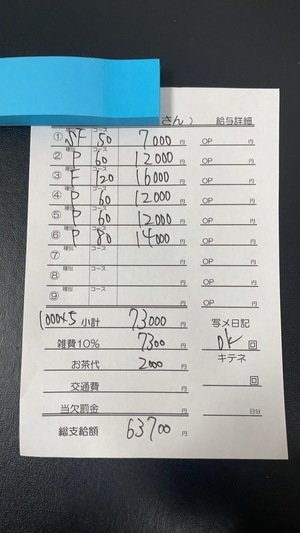 さん） 給与詳細
① 種別 SF コース 50 7000 円 OP 円
② 種別 P コース 60 12000 円 OP 円
③ 種別 F コース 120 16000 円 OP 円
④ 種別 P コース 60 12000 円 OP 円
⑤ 種別 P コース 60 12000 円 OP 円
⑥ 種別 P コース 80 14000 円 OP 円
⑦ 種別 コース 円 OP 円
⑧ 種別 コース 円 OP 円
⑨ 種別 コース 円 OP 円
1000×5 小計 73000 円 写メ日記
雑費10% 7300 円 OK 回
お茶代 2000 円 キテネ
交通費 円 回
当欠罰金 円 日分
総支給額 63700 円